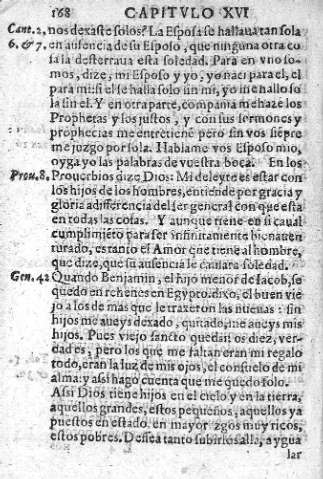 168 CAPITVLO XVI
Cant. 2, nos dexaste solos? La Esposa se hallaua tan sola
6. & 7. en ausencia de su Esposo, que ninguna otra co
sa la desterraua esta soledad. Para en vno so-
mos, dize, mi Esposo y yo, yo naci para el, el
para mi: si el se halla solo sin mi, yo me hallo so
la sin el. Y en otra parte, compania me haze los
Prophetas y los justos, y con sus sermones y
prophecias me entretiene pero sin vos siẽpre
me juzgo por sola. Hablame vos Esposo mio,
oyga yo las palabras de vuestra boca. En los
Prou. 8. Prouerbios dize Dios: Mi deleyte es estar con
los hijos de los hombres, entiende por gracia y
gloria a differencia del ser general con que està
en todas las cosas. Y aunque tiene en si caual
cumplimiẽto para ser infinitamente bienauen
turado, es tanto el Amor que tiene al hombre,
que dize, que su ausencia le causara soledad.
Gen. 42 Quando Benjamin, el hijo menor de Iacob, se
quedo en rehenes en Egypto: dixo, el buen vie
jo a los de mas que le traxeron las nueuas: sin
hijos me aueys dexado, quitado, me aueys mis
hijos. Pues viejo sancto quedan os diez, ver-
dad es, pero los que me faltan eran mi regalo
todo, eran la luz de mis ojos, el consuelo de mi
alma: y assi hago cuenta que me quedo solo.
Assi Dios tiene hijos en el cielo y en la tierra,
aquellos grandes, estos pequeños, aquellos ya
puestos en estado. en mayor zgos muy ricos,
estos pobres. Dessea tanto subirlos alla, aygua
lar